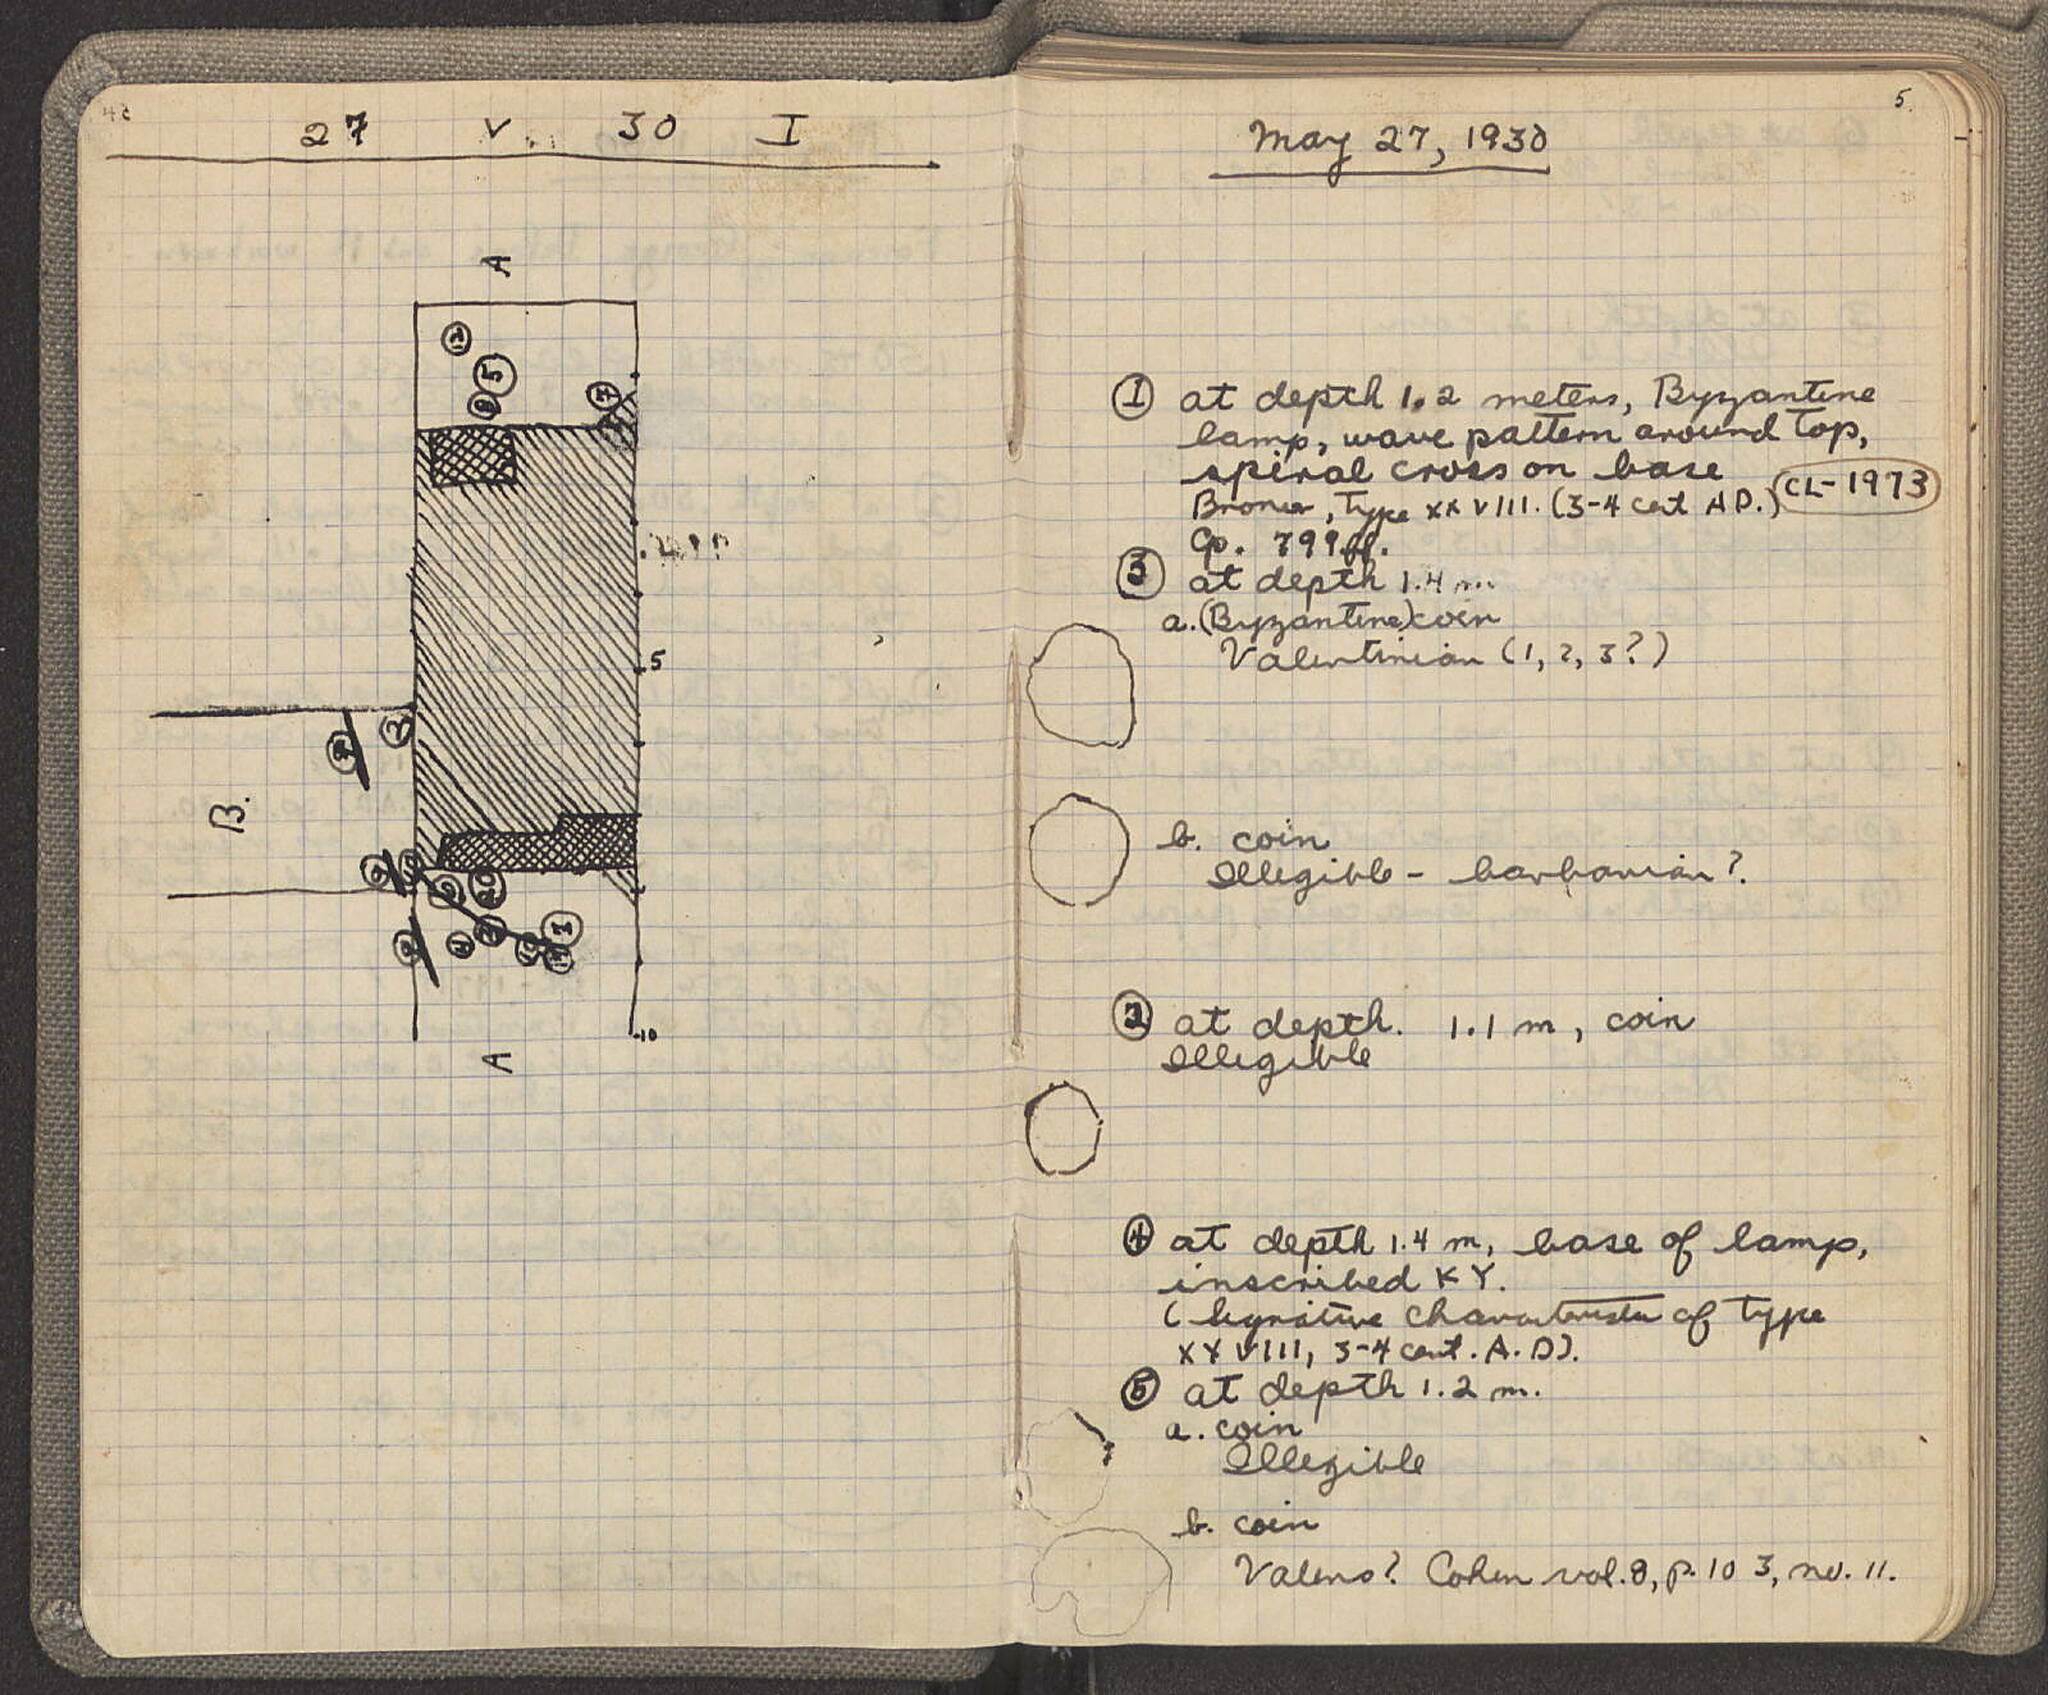 27 V. 30 I
A
12
5
8
7
5
3
B.
9
20
4
A
10
5.
May 27, 1930
① at depth 1.2 meters, Byzantine
lamp, wave pattern around top,
spiral cross on base
Broneer, Type XXVIII. (3-4 cent A.D.) CL-1973
Cp. 799ff.
③ at depth 1.4 m.
a. (Byzantine) coin
Valentinian (1, 2, 3?)
b. coin
Illegible - barbarian?
② at depth. 1.1 m, coin
Illegible
④ at depth 1.4 m, base of lamp,
inscribed KY.
( of type
XXVIII, 3-4 cent. A.D).
⑤ at depth 1.2 m.
a. coin
Illegible
b. coin
Valens? Cohen vol. 8, p. 103, no. 11.